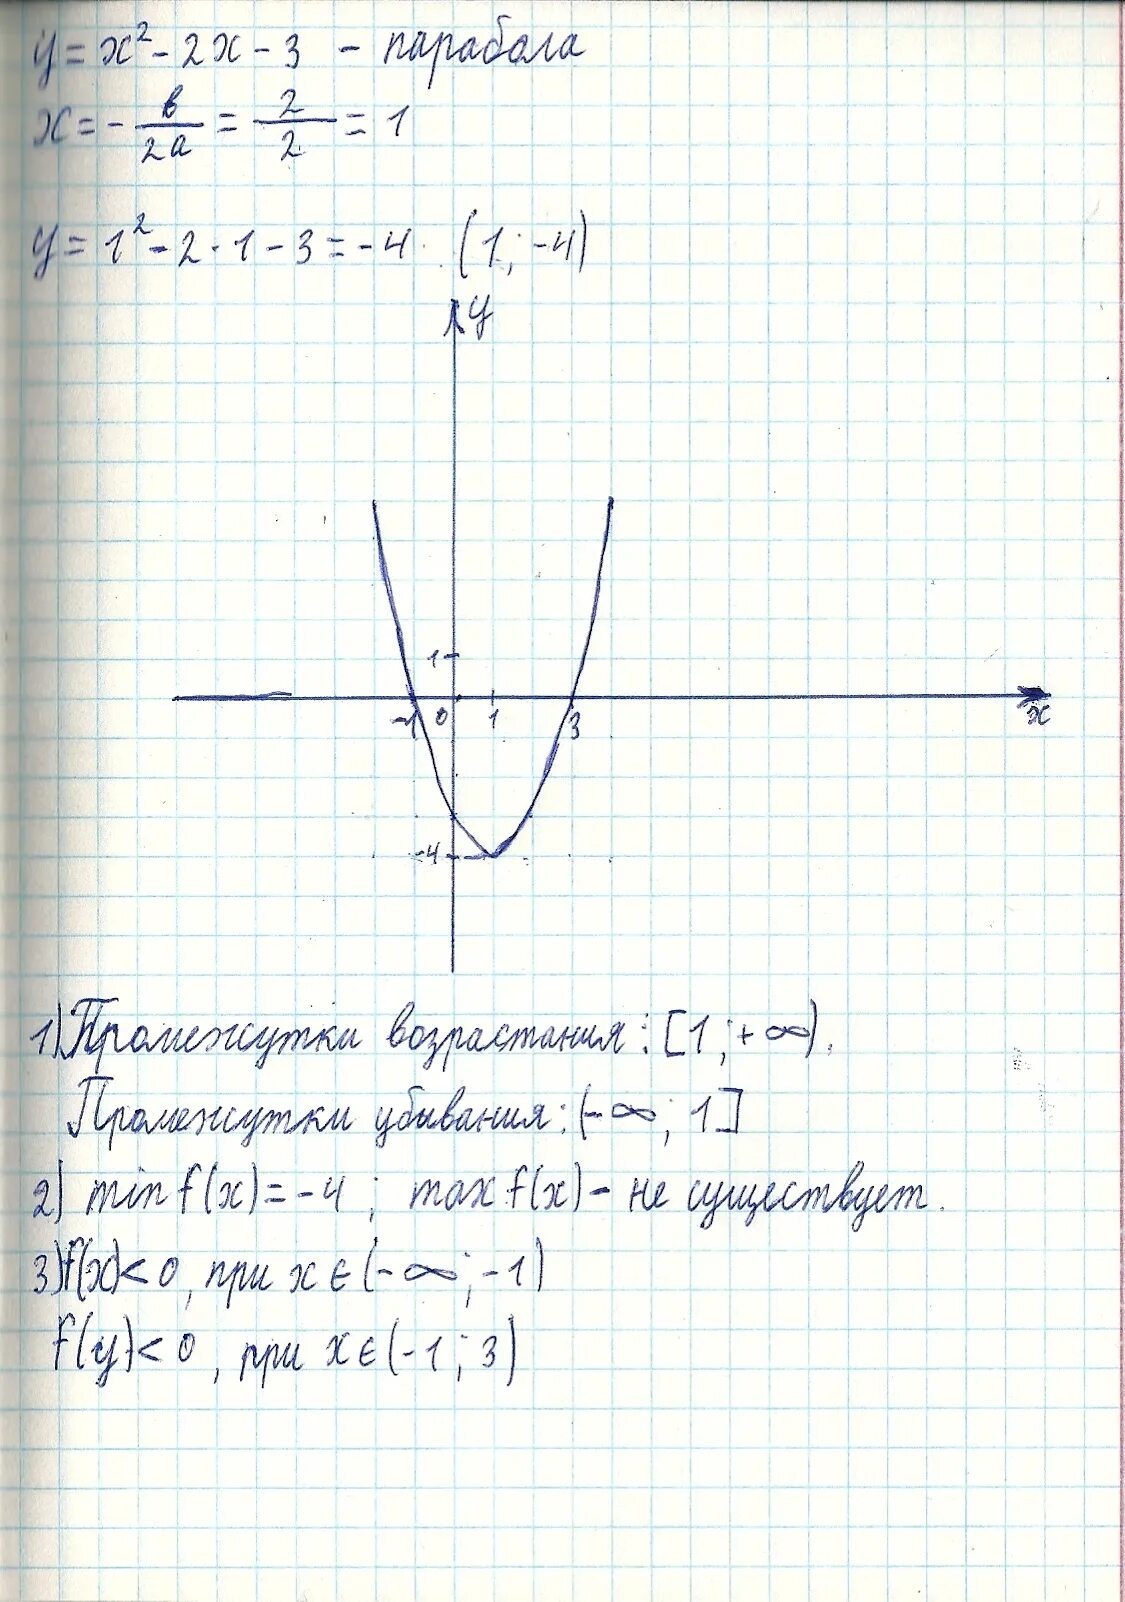 y = x² - 2x - 3 - парабола
x = - в/2a = 2/2 = 1
y = 1² - 2 · 1 - 3 = -4 (1; -4)
y
1
-1 0 1 3
x
-4
1) Промежутки возрастания: [1; +∞).
Промежутки убывания: (-∞; 1]
2) min f(x) = -4; max f(x) - не существует.
3) f(x) < 0, при x ∈ (-∞; -1)
f(y) < 0, при x ∈ (-1; 3)